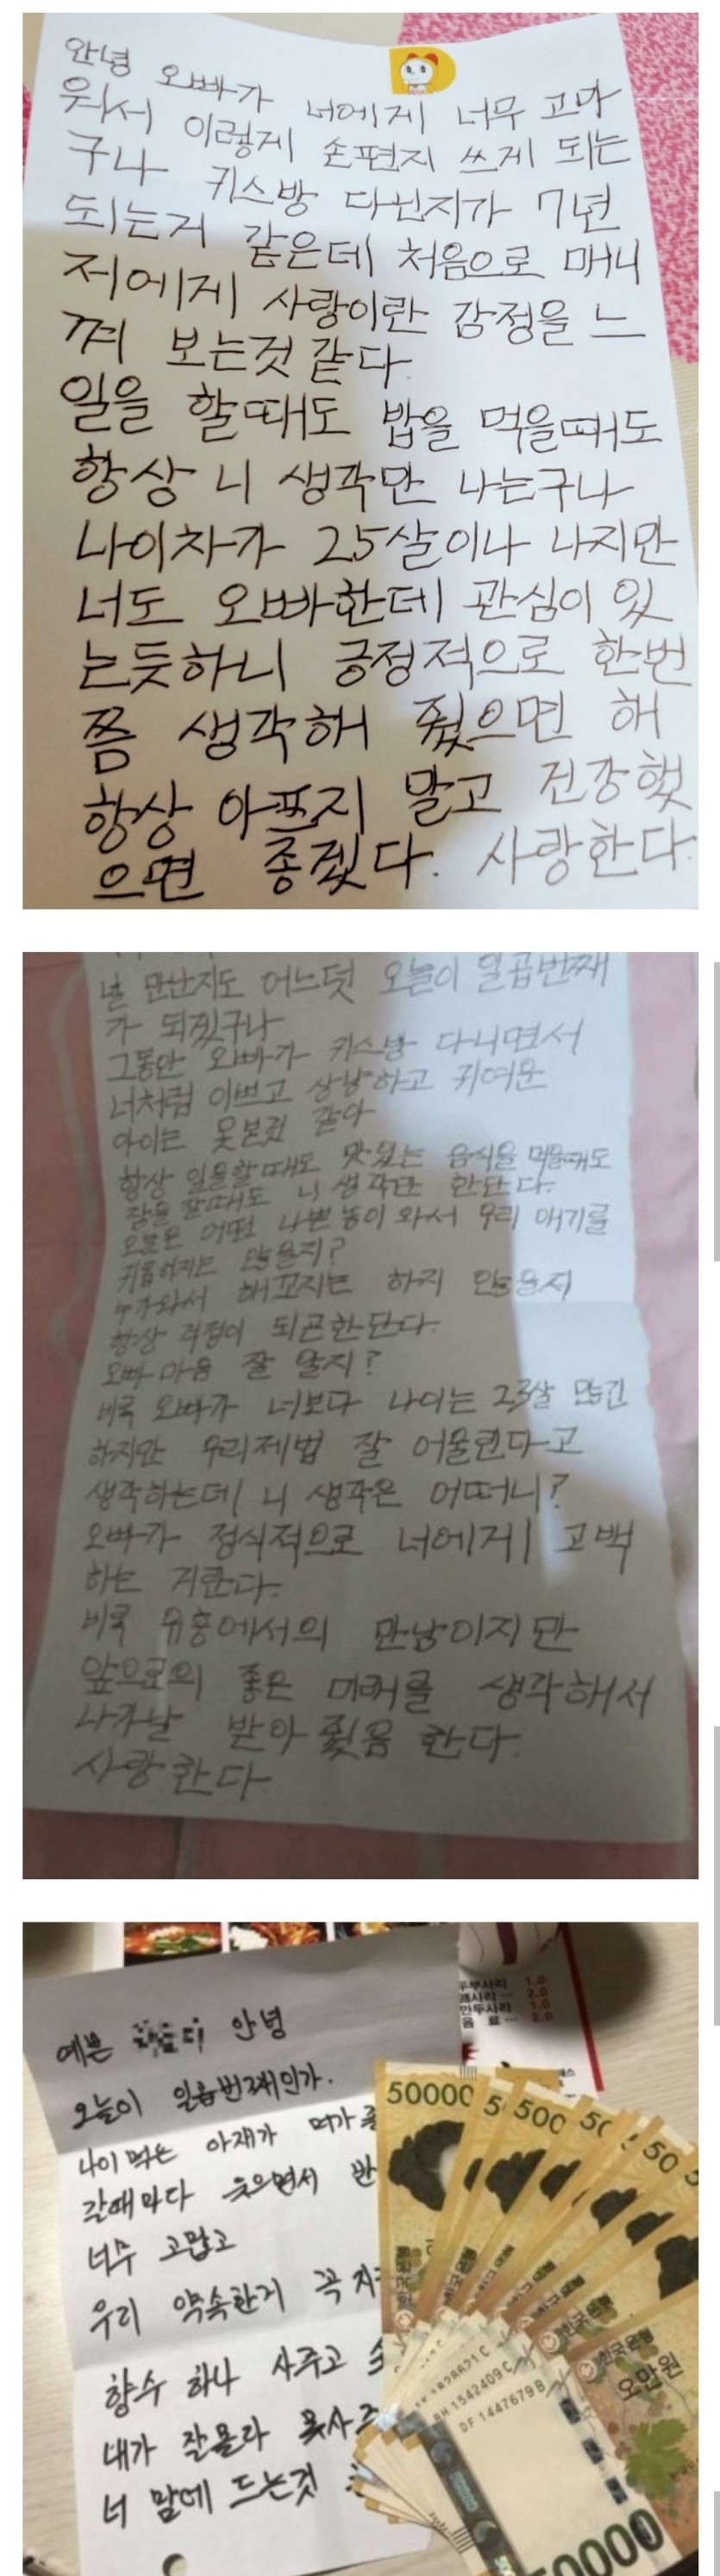 안녕 오빠가 너에게 너무 고마
워서 이렇게 손편지 쓰게 되는
구나 키스방 다닌지가 7년
되는거 같은데 처음으로 매니
저에게 사랑이란 감정을 느
껴 보는것 같다.
일을 할때도 밥을 먹을때도
항상 니 생각만 나는구나
나이차가 25살이나 나지만
너도 오빠한데 관심이 있
는듯하니 긍정적으로 한번
쯤 생각해 줬으면 해
항상 아프지 말고 건강했
으면 좋겠다. 사랑한다.
널 만난지도 어느덧 오늘이 일곱번째
가 되겠구나
그동안 오빠가 키스방 다니면서
너처럼 이쁘고 상냥하고 귀여운
아이는 못본것 같아
항상 일을할때도 맛있는 음식을 먹을때도
잠을 잘때도 니 생각만 한단다.
오늘은 어떤 나쁜놈이 와서 우리 애기를
않을지?
누가와서 해꼬지는 하지 않을지
항상 걱정이 되곤한단다.
오빠 마음 잘 알지?
비록 오빠가 너보다 나이는 23살 많긴
하지만 우리제법 잘 어울린다고
생각하는데 니 생각은 어떠니?
오빠가 정식적으로 너에게 고백
하는 거란다.
비록 유흥에서의 만남이지만
앞으로의 좋은 미래를 생각해서
나가날 받아 줬음 한다.
사랑한다
두부사리 1.0
2.0
만두사리 1.0
음 료 2.0
예쁜 안녕
오늘이 일곱번째인가.
나이 먹은 아재가 뭐가 좋
갈때마다 웃으면서 반
너무 고맙고
우리 약속한거 꼭 지
향수 하나 사주고
내가 잘몰라 못사주
너 맘에 드는것
50000
5
500
50
50
5
한국은행
한국은행
한국은행
오만원
BH 1542409 C
DF 1447679 B
50000